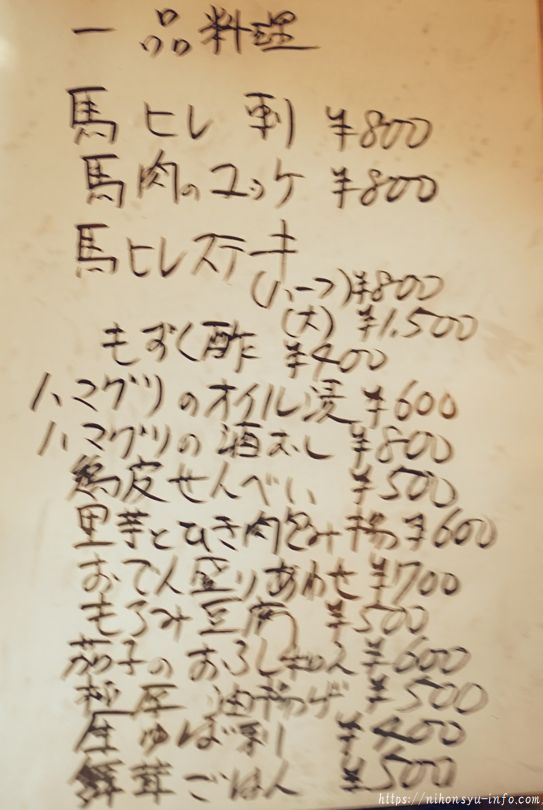 一品料理
馬ヒレ刺 ¥800
馬肉のユッケ ¥800
馬ヒレステーキ
(ハーフ)¥800
(大) ¥1,500
もずく酢 ¥400
ハマグリのオイル漬 ¥600
ハマグリの酒むし ¥800
鶏皮せんべい ¥500
里芋とひき肉包み揚 ¥600
おでん盛りあわせ ¥700
もろみ豆腐 ¥500
茄子のおろしポン ¥600
極厚 油揚げ ¥500
生ゆば刺 ¥400
舞茸ごはん ¥500
https://nihonsyu-info.com